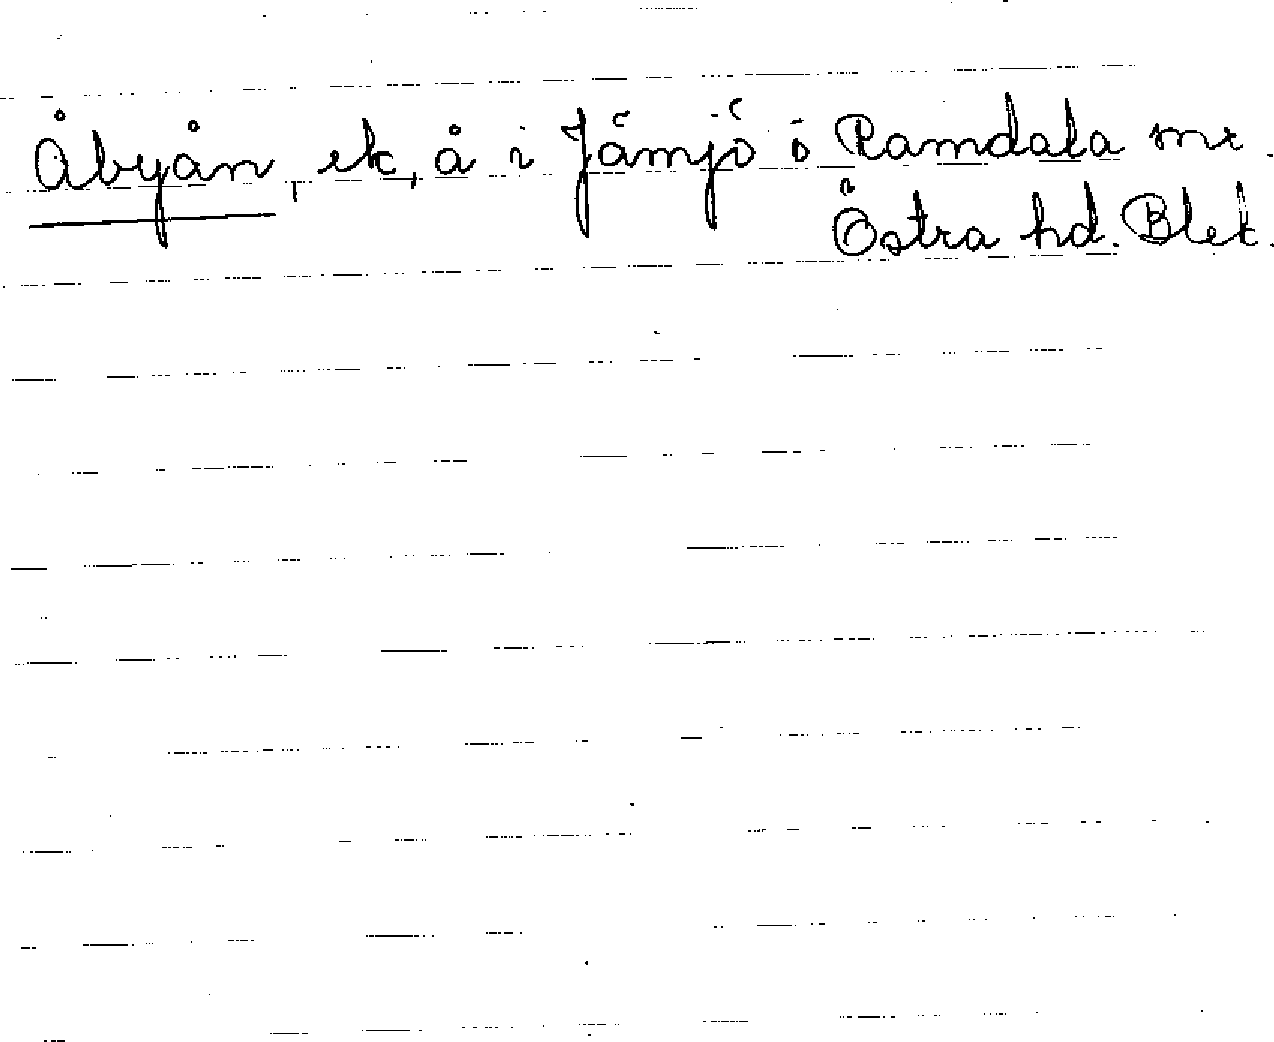 Åbyån, ek, å i Jämjö ö Ramdala sn.
Östra hd. Blek.